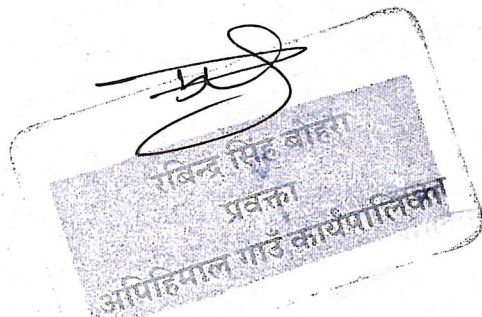 रबिन्द्र सिंह बोहरा
प्रवक्ता
अपिहिमाल गाउँ कार्यपालिका